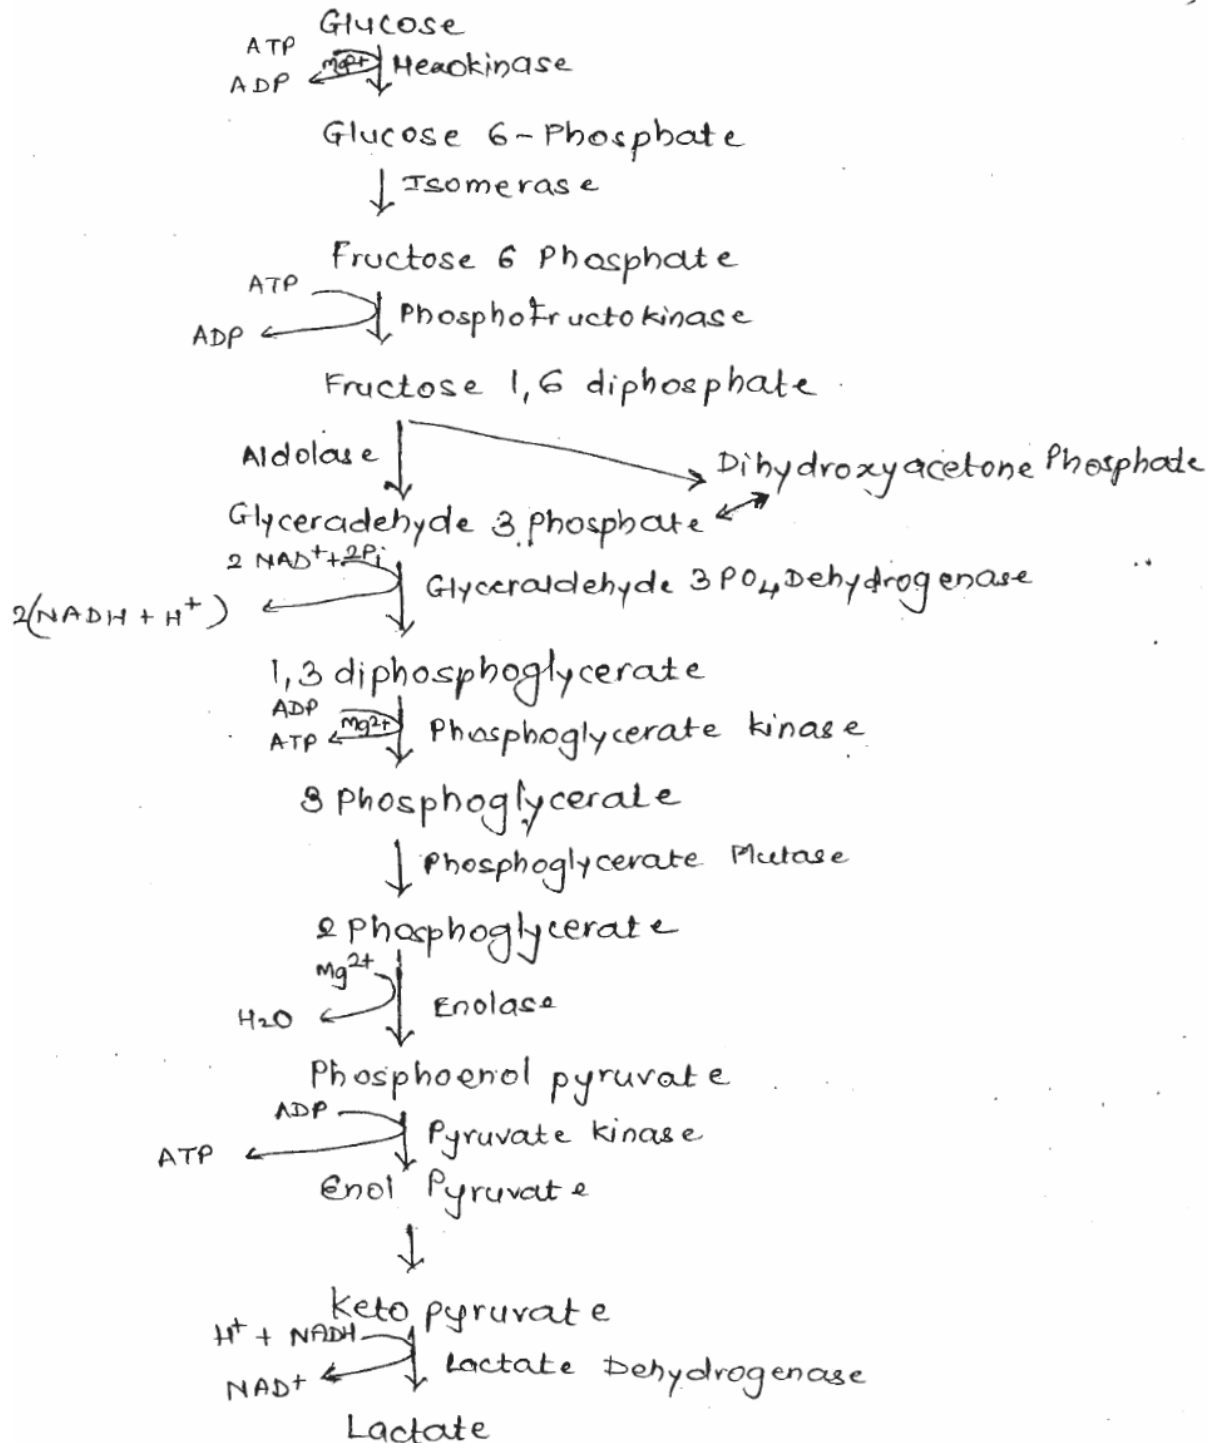 Glucose
ATP
Mg2+ Hexokinase
ADP
Glucose 6-Phosphate
Isomerase
Fructose 6 Phosphate
ATP
Phosphofructokinase
ADP
Fructose 1,6 diphosphate
Aldolase
Dihydroxyacetone Phosphate
Glyceradehyde 3 Phosphate
2 NAD+ + 2Pi
Glyceraldehyde 3 PO4 Dehydrogenase
2(NADH + H+)
1,3 diphosphoglycerate
ADP
Mg2+ Phosphoglycerate kinase
ATP
3 Phosphoglycerate
Phosphoglycerate Mutase
2 Phosphoglycerate
Mg2+
Enolase
H2O
Phosphoenol pyruvate
ADP
Pyruvate kinase
ATP
Enol Pyruvate
Keto pyruvate
H+ + NADH
Lactate Dehydrogenase
NAD+
Lactate